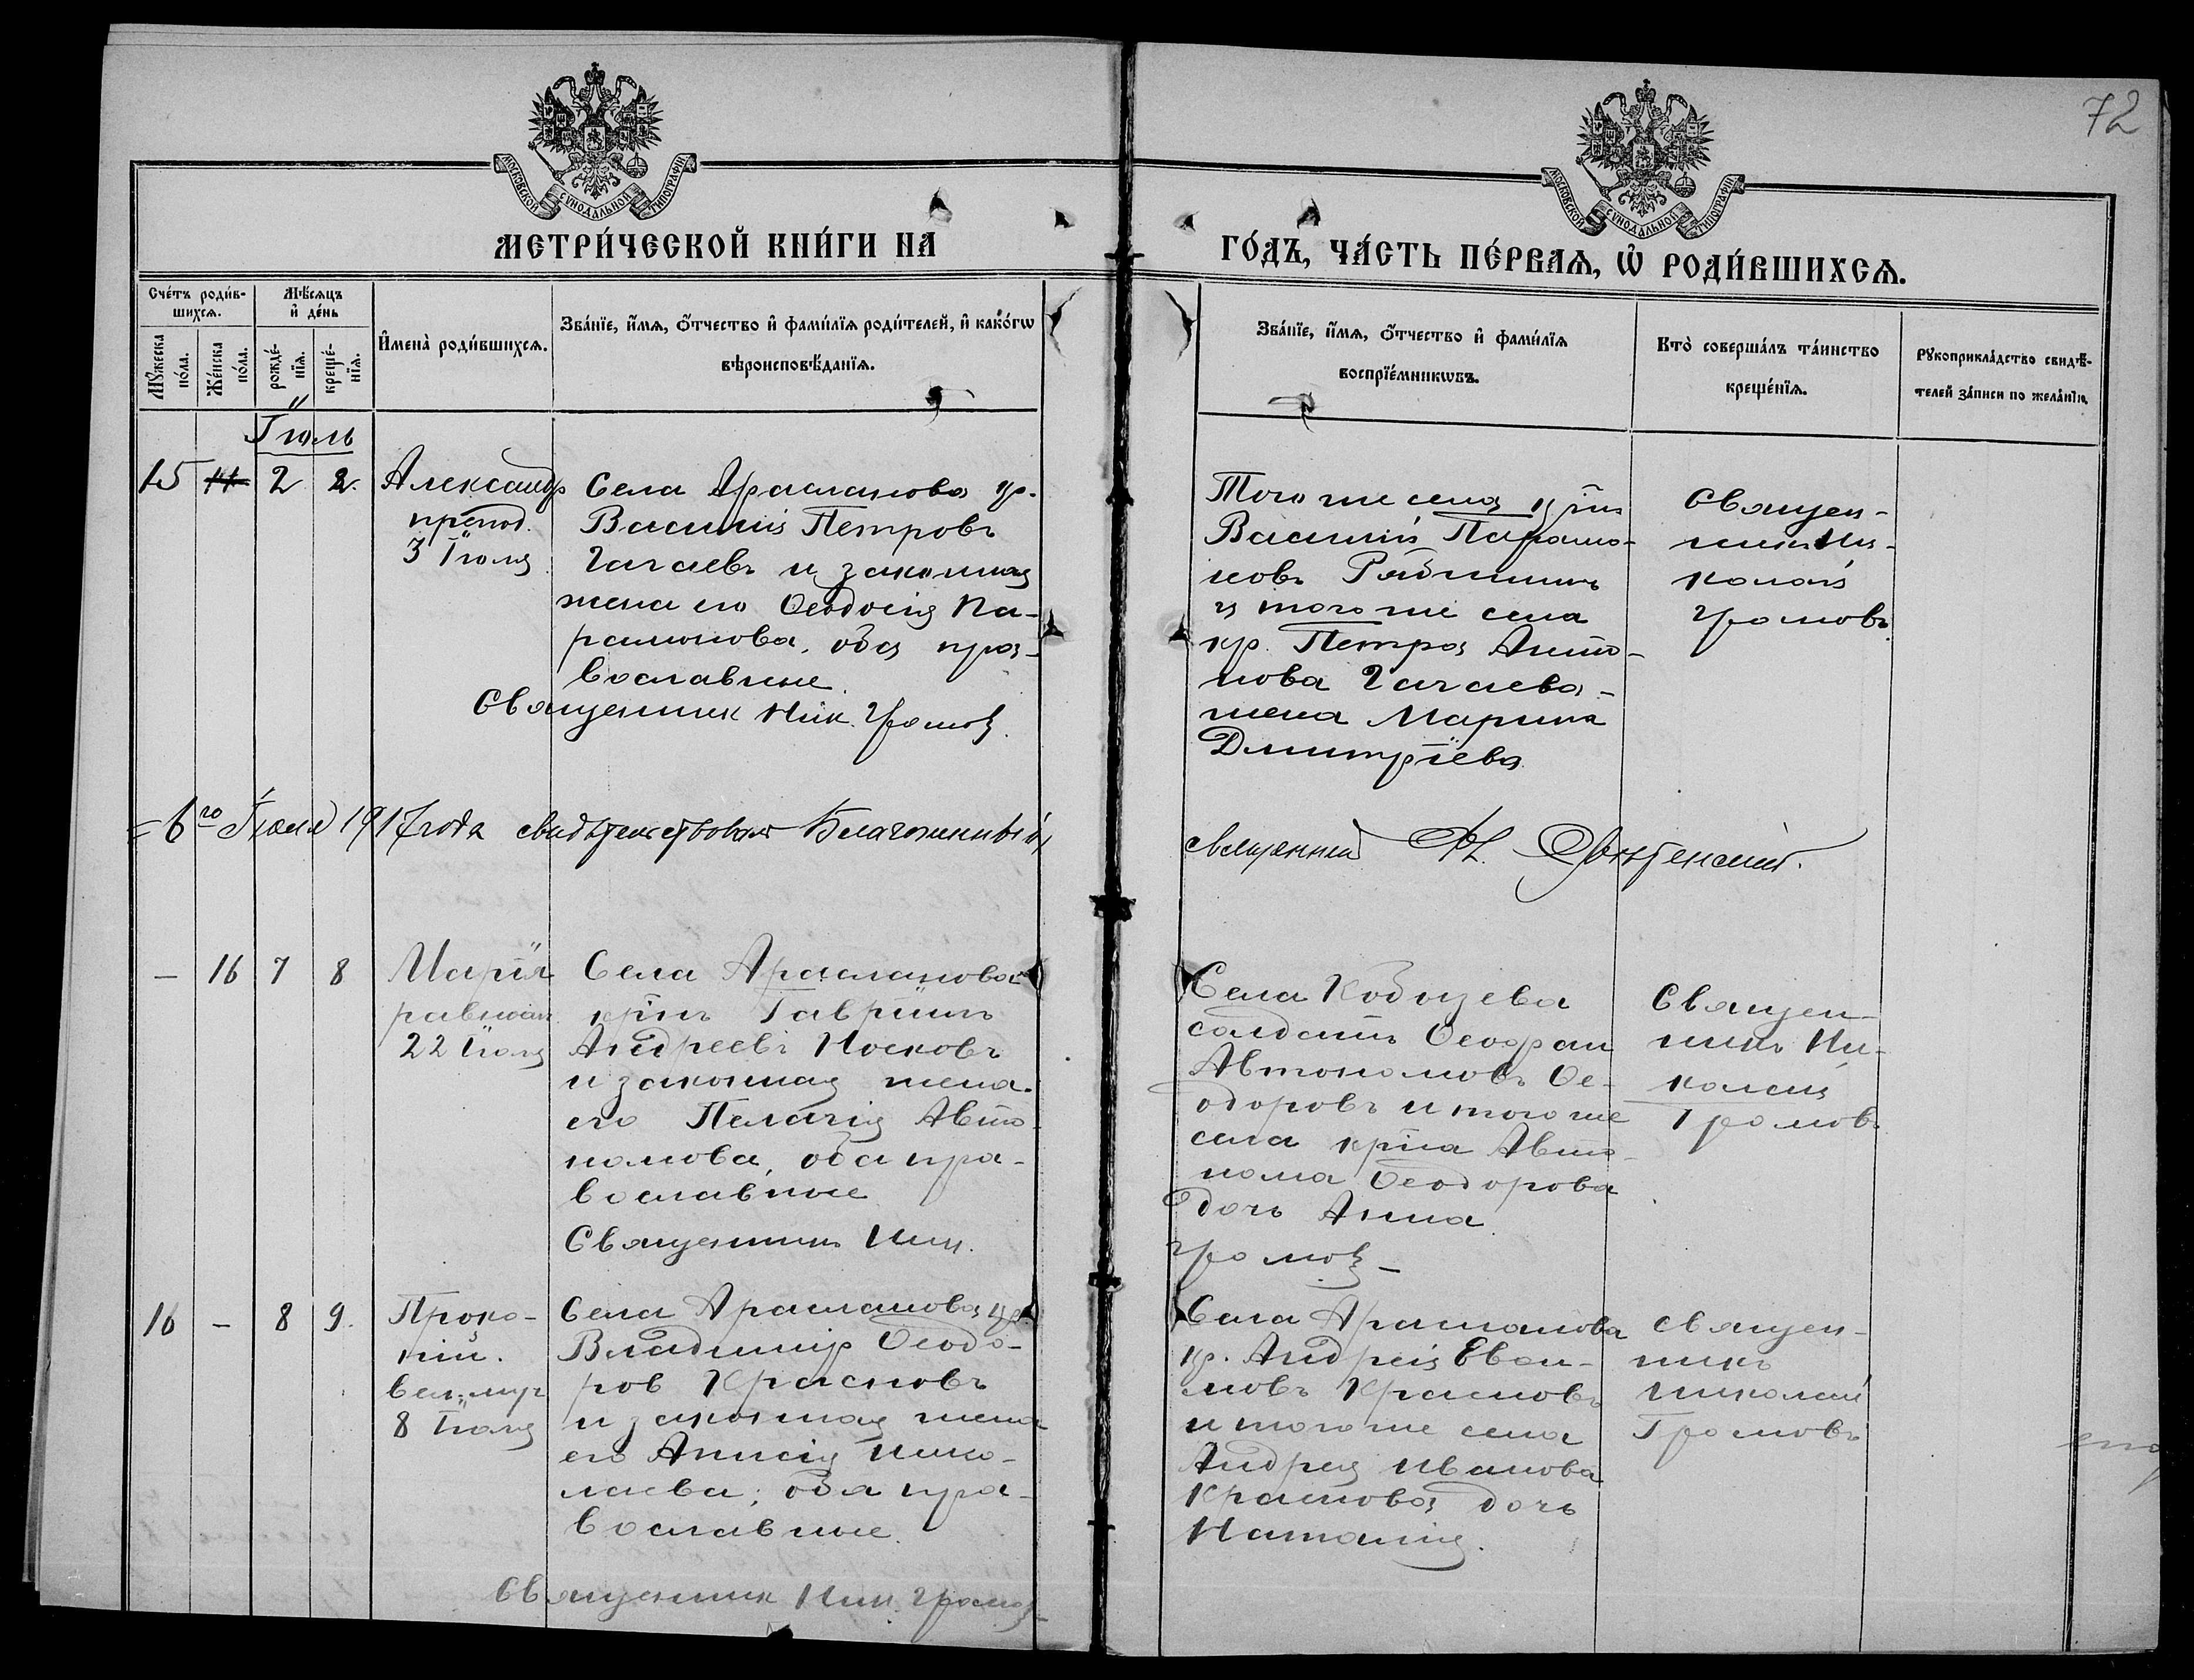 72
МОСКОВСКОЙ СУНОДАЛЬНОЙ ТИПОГРАФІИ
МОСКОВСКОЙ СУНОДАЛЬНОЙ ТИПОГРАФІИ
МЕТРИ́ЧЕСКОЙ КНИ́ГИ НА
ГО́ДЪ, ЧА́СТЬ ПЕ́РВАѦ, Ѡ҆ РОДИ́ВШИХСѦ.
Сче́тъ роди́в-
шихсѧ.
Мꙋ́жеска
по́ла.
Же́нска
по́ла.
Мѣ́сѧцъ
и҆ де́нь
рожде́-
нїѧ.
креще́-
нїѧ.
И҆мена̀ роди́вшихсѧ.
Зва́нїе, и҆́мѧ, ѻ҆́тчество и҆ фами́лїѧ роди́телей, и҆ како́гѡ
вѣроисповѣ́данїѧ.
Зва́нїе, и҆́мѧ, ѻ҆́тчество и҆ фами́лїѧ
воспрїе́мникѡвъ.
Кто̀ соверша́лъ та́инство
креще́нїѧ.
Рꙋкоприкла́дство свидѣ́-
телей за́писи по жела́нїю.
Іюль
15 11 2 2.
Александр
препод.
3 Іюля
Села Арасланова кр.
Василій Петровъ
Гагаевъ и законная
жена его Ѳеодосія Па-
рамонова, оба пра-
вославные.
Священник Ник. Громов.
Того же села крᲂⷭ҇
Василій Парамо-
новъ Рябининъ
и того же села
кр. Петра Анто-
нова Гагаева
жена Марина
Дмитріева
Священ-
никъ Ни-
колай
Громовъ.
6го Іюля 1917 года свидѣтельствовалъ Благочинный,
священник
– 16 7 8
Марія
равноап.
22 Іюля
Села Арасланова
крᲂⷭ҇ Гавріилъ
Андреевъ Носковъ
и законная жена
его Пелагія Авто-
номова, оба пра-
вославные
Священникъ Ник.
Села Кобызева
солдатъ Ѳеофан
Автономовъ Ѳе-
одоровъ и того же
села крᲂⷭ҇ Авто-
нома Ѳеодорова
дочь Анна
Громов
Священ-
никъ Ни-
колай
Громовъ
16 – 8 9.
Проко-
пій.
вел. муч.
8 Іюля
Села Арасланова кр.
Владимір Ѳеодо-
ров Красновъ
и законная жена
его Анисія Нико-
лаева; оба пра-
вославные.
Священник Ник. Громов
Села Арасланова
кр. Андрей
Красновъ
и того же села
Андрея Иванова
Краснова дочь
Наталія.
Священ-
никъ
Николай
Громовъ